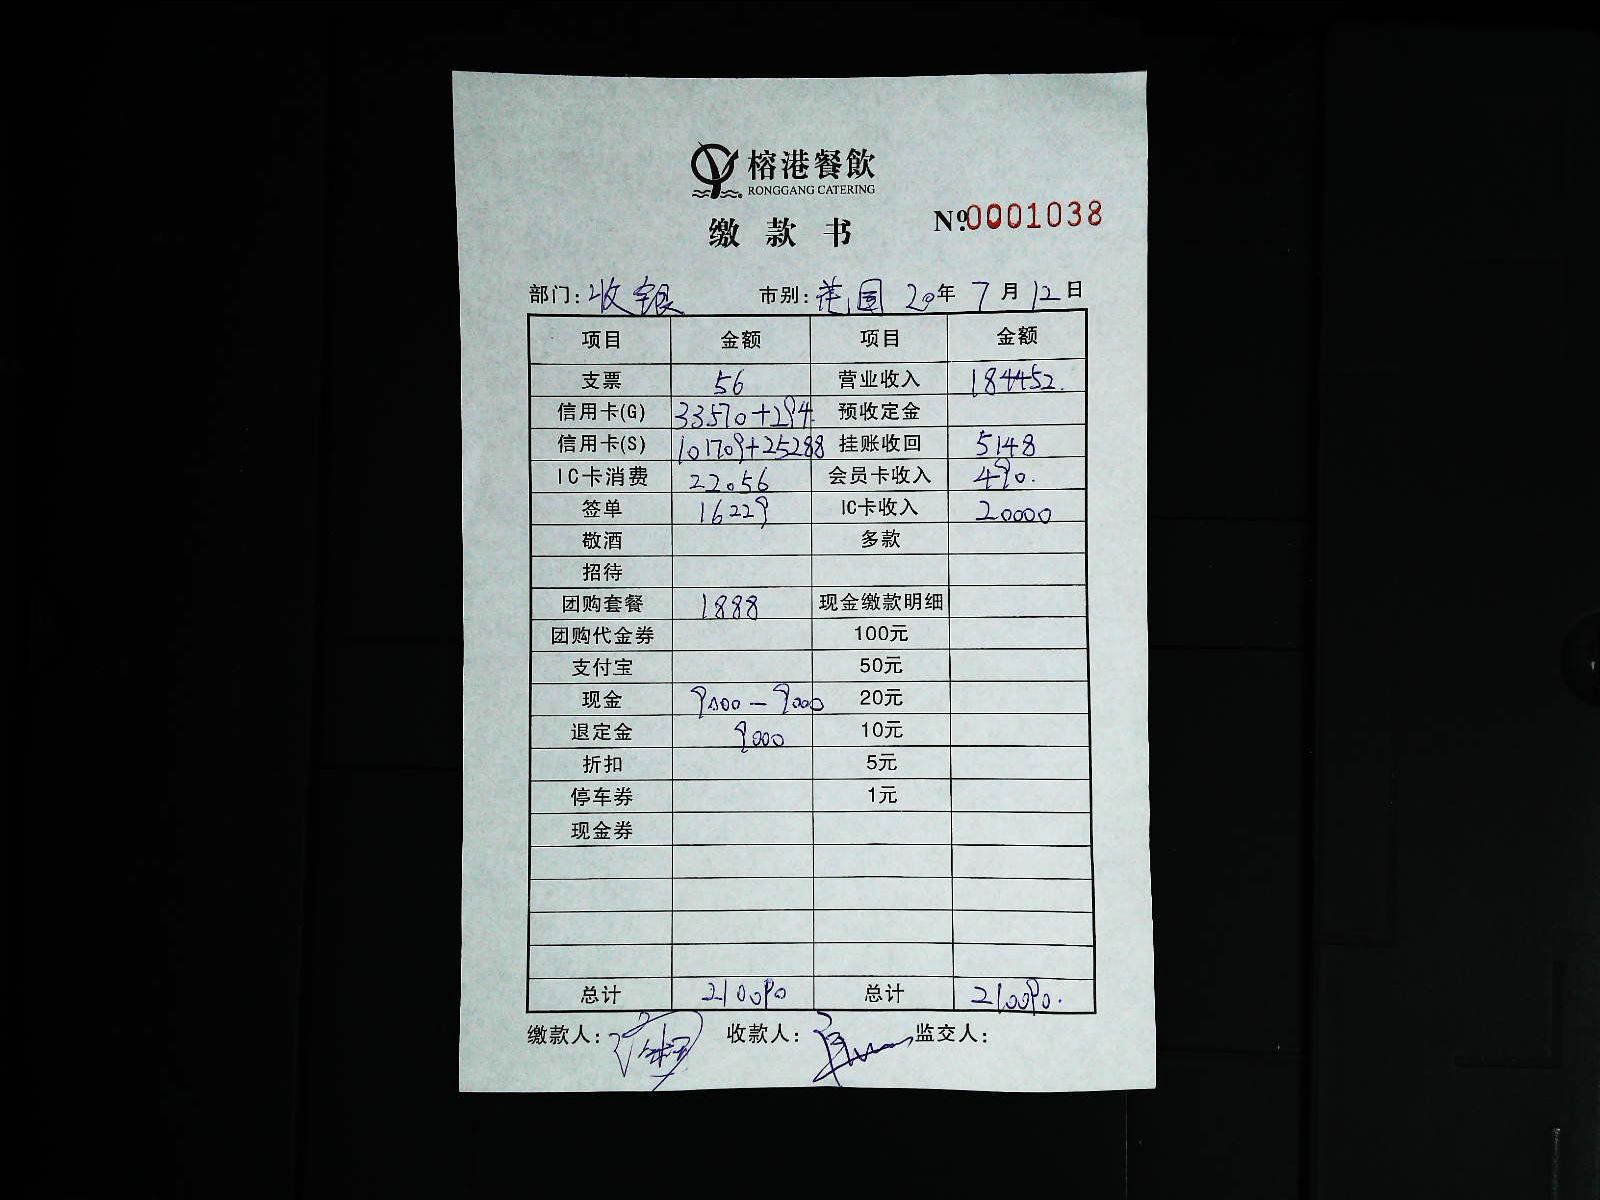 榕港餐飲
RONGGANG CATERING
缴款书
№0001038
部门：收银 市别： 20年7月12日
项目 金额 项目 金额
支票 56 营业收入 184452.
信用卡(G) 33570+294 预收定金
信用卡(S) 101709+25288 挂账收回 5148
IC卡消费 22056 会员卡收入 490.
签单 16229 IC卡收入 20000
敬酒 多款
招待
团购套餐 1888 现金缴款明细
团购代金券 100元
支付宝 50元
现金 9000－9000 20元
退定金 9000 10元
折扣 5元
停车券 1元
现金券
总计 210090 总计 210090.
缴款人： 收款人： 监交人：